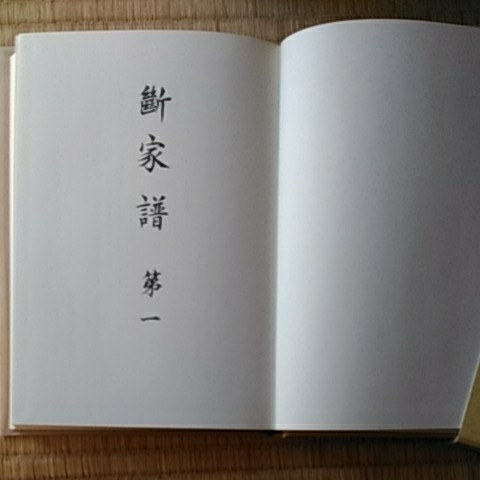 斷家譜 第一